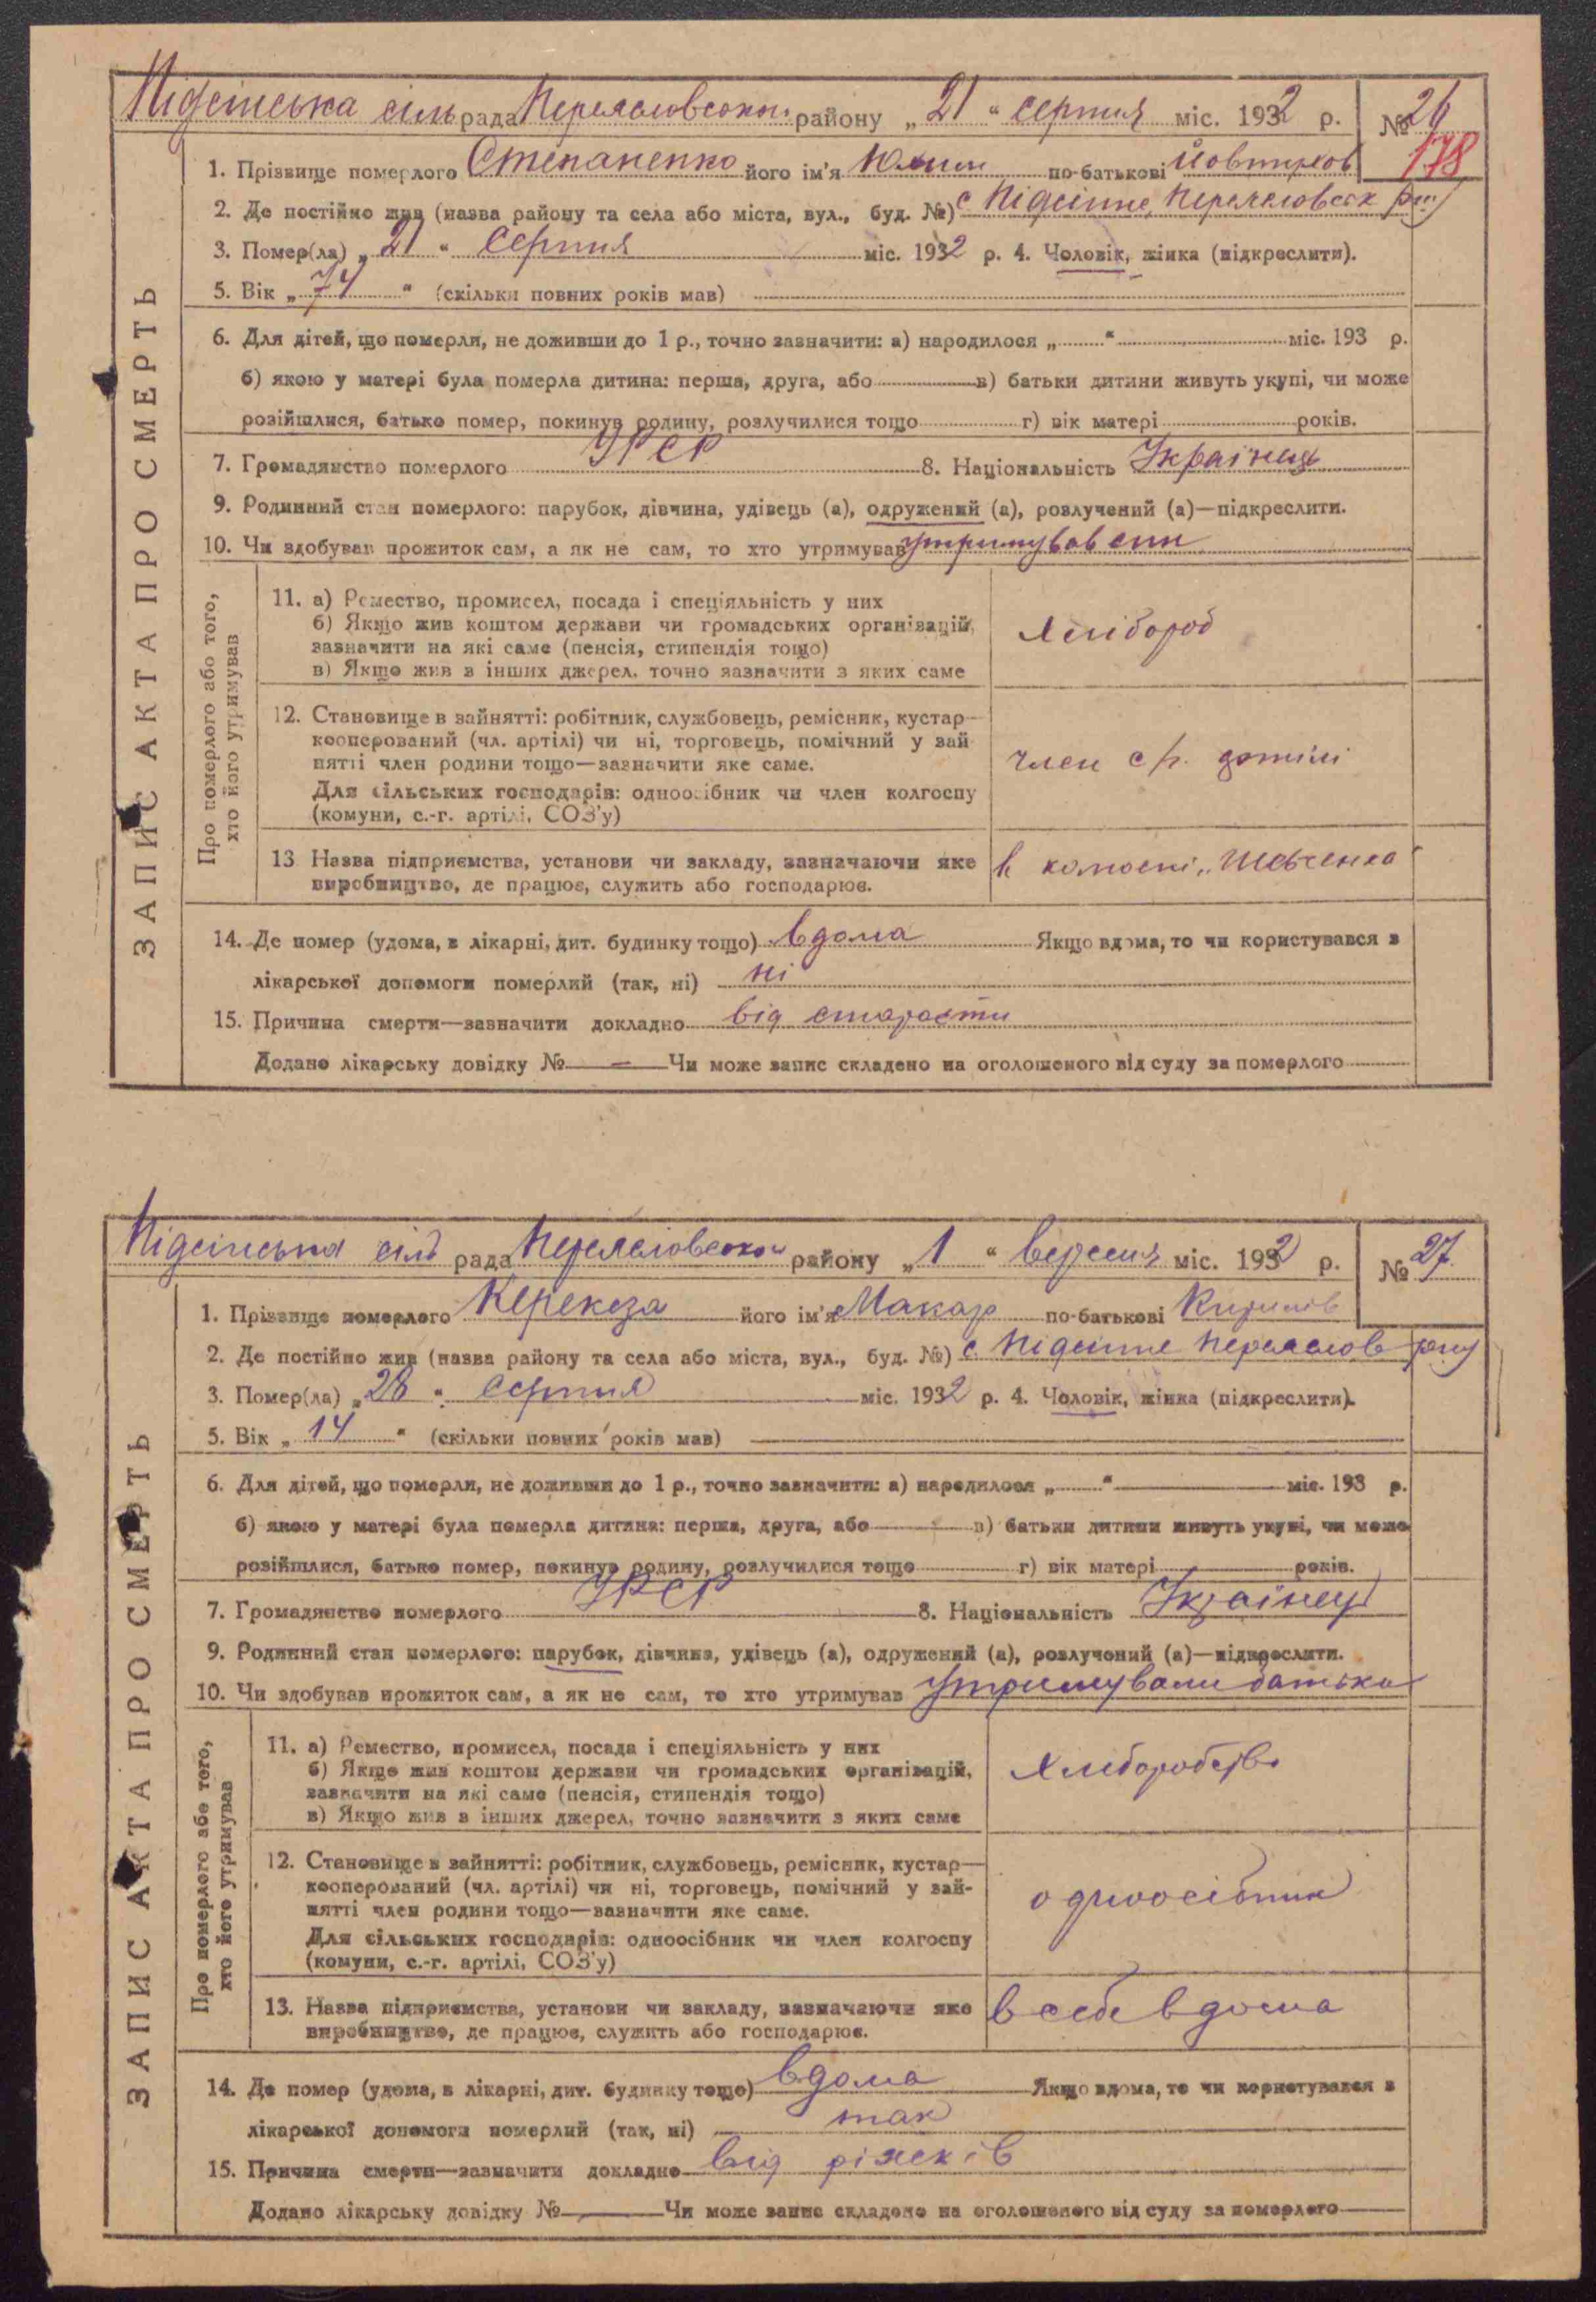 Підсінська сіль рада Переясловської району „21“ серпня міс. 1932 р. № 26
178
1. Прізвище померлого Степаненко його ім'я Юхим по-батькові
2. Де постійно жив (назва району та села або міста, вул., буд. №) с Підсінне Переяслов рну
3. Помер(ла) „21“ Серпня міс. 1932 р. 4. Чоловік, жінка (підкреслити).
5. Вік „74“ (скільки повних років мав)
6. Для дітей, що померли, не доживши до 1 р., точно зазначити: а) народилося „ “ міс. 193 р.
б) якою у матері була померла дитина: перша, друга, або в) батьки дитини живуть укупі, чи може
розійшлися, батько помер, покинув родину, розлучилися тощо г) вік матері років.
7. Громадянство померлого УРСР 8. Національність Українець
9. Родинний стан померлого: парубок, дівчина, удівець (а), одружений (а), розлучений (а)—підкреслити.
10. Чи здобував прожиток сам, а як не сам, то хто утримував утримував син
ЗАПИС АКТА ПРО СМЕРТЬ
Про померлого або того,
хто його утримував
11. а) Ремество, промисел, посада і спеціяльність у них
б) Якщо жив коштом держави чи громадських організацій,
зазначити на які саме (пенсія, стипендія тощо)
в) Якщо жив з інших джерел, точно зазначити з яких саме
Хлібороб
12. Становище в зайнятті: робітник, службовець, ремісник, кустар—
кооперований (чл. артілі) чи ні, торговець, помічний у зай-
нятті член родини тощо—зазначити яке саме.
Для сільських господарів: одноосібник чи член колгоспу
(комуни, с.-г. артілі, СОЗ'у)
член с/г. артілі
13 Назва підприємства, установи чи закладу, зазначаючи яке
виробництво, де працює, служить або господарює.
в колгоспі „Шевченка“
14. Де помер (удома, в лікарні, дит. будинку тощо) вдома Якщо вдома, то чи користувався з
лікарської допомоги померлий (так, ні) ні
15. Причина смерти—зазначити докладно від старости
Додано лікарську довідку № — Чи може запис складено на оголошеного від суду за померлого
Підсінська сіль рада Переясловської району „1“ вересня міс. 1932 р. № 27
1. Прізвище померлого Керекеза його ім'я Макар по-батькові Кирилів
2. Де постійно жив (назва району та села або міста, вул., буд. №) с. Підсінне Переяслов рну
3. Помер(ла) „28“ Серпня міс. 1932 р. 4. Чоловік, жінка (підкреслити).
5. Вік „14“ (скільки повних років мав)
6. Для дітей, що померли, не доживши до 1 р., точно зазначити: а) народилося „ “ міс. 193 р.
б) якою у матері була померла дитина: перша, друга, або в) батьки дитини живуть укупі, чи може
розійшлися, батько помер, покинув родину, розлучилися тощо г) вік матері років.
7. Громадянство померлого УРСР 8. Національність Українець
9. Родинний стан померлого: парубок, дівчина, удівець (а), одружений (а), розлучений (а)—підкреслити.
10. Чи здобував прожиток сам, а як не сам, то хто утримував утримували батьки
ЗАПИС АКТА ПРО СМЕРТЬ
Про померлого або того,
хто його утримував
11. а) Ремество, промисел, посада і спеціяльність у них
б) Якщо жив коштом держави чи громадських організацій,
зазначити на які саме (пенсія, стипендія тощо)
в) Якщо жив з інших джерел, точно зазначити з яких саме
Хліборобство
12. Становище в зайнятті: робітник, службовець, ремісник, кустар—
кооперований (чл. артілі) чи ні, торговець, помічний у зай-
нятті член родини тощо—зазначити яке саме.
Для сільських господарів: одноосібник чи член колгоспу
(комуни, с.-г. артілі, СОЗ'у)
одноосібник
13. Назва підприємства, установи чи закладу, зазначаючи яке
виробництво, де працює, служить або господарює.
в себе вдома
14. Де помер (удома, в лікарні, дит. будинку тощо) вдома Якщо вдома, то чи користувався з
лікарської допомоги померлий (так, ні) так
15. Причина смерти—зазначити докладно від ріжків
Додано лікарську довідку № — Чи може запис складено на оголошеного від суду за померлого